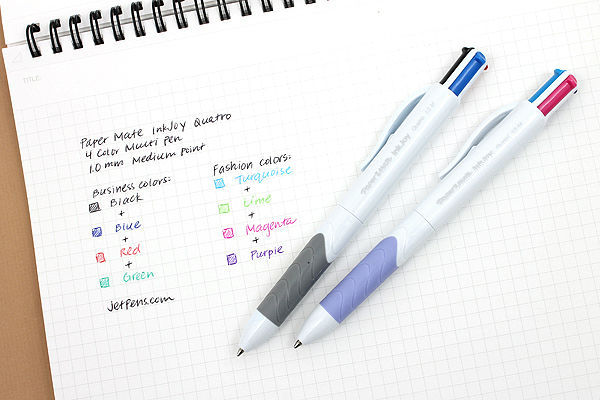 TITLE
Paper Mate InkJoy Quatro
4 Color Multi Pen
1.0 mm Medium Point
Business colors:
Black
+
Blue
+
Red
+
Green
Fashion colors:
Turquoise
+
Lime
+
Magenta
+
Purple
jetpens.com
Paper Mate InkJoy Quatro
Paper Mate InkJoy Quatro